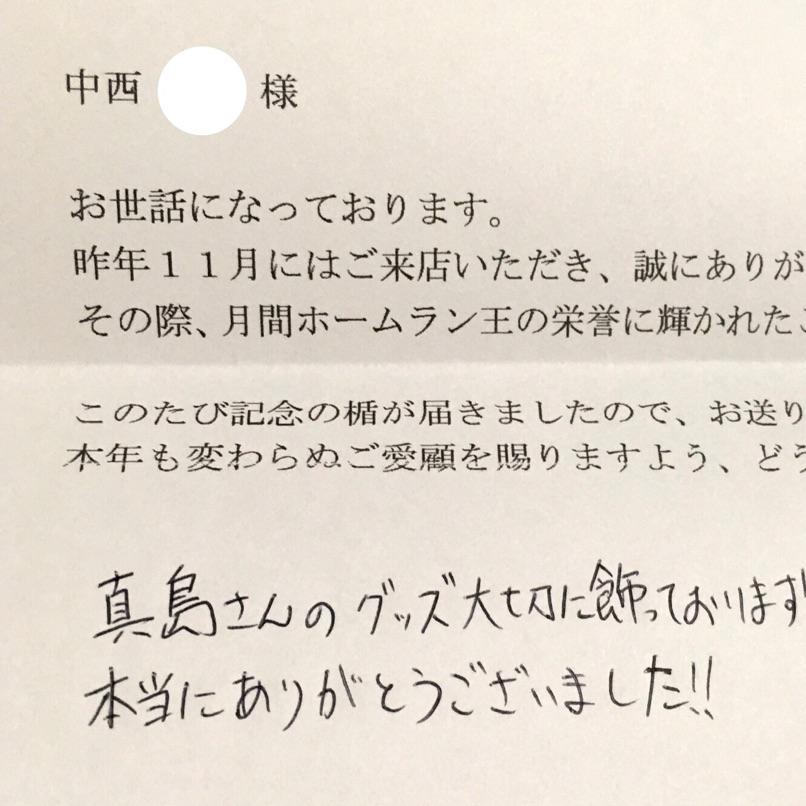 中西 様
お世話になっております。
昨年１１月にはご来店いただき、誠にありが
その際、月間ホームラン王の栄誉に輝かれたこ
このたび記念の楯が届きましたので、お送り
本年も変わらぬご愛顧を賜りますよう、どう
真島さんのグッズ大切に飾っております!
本当にありがとうございました!!